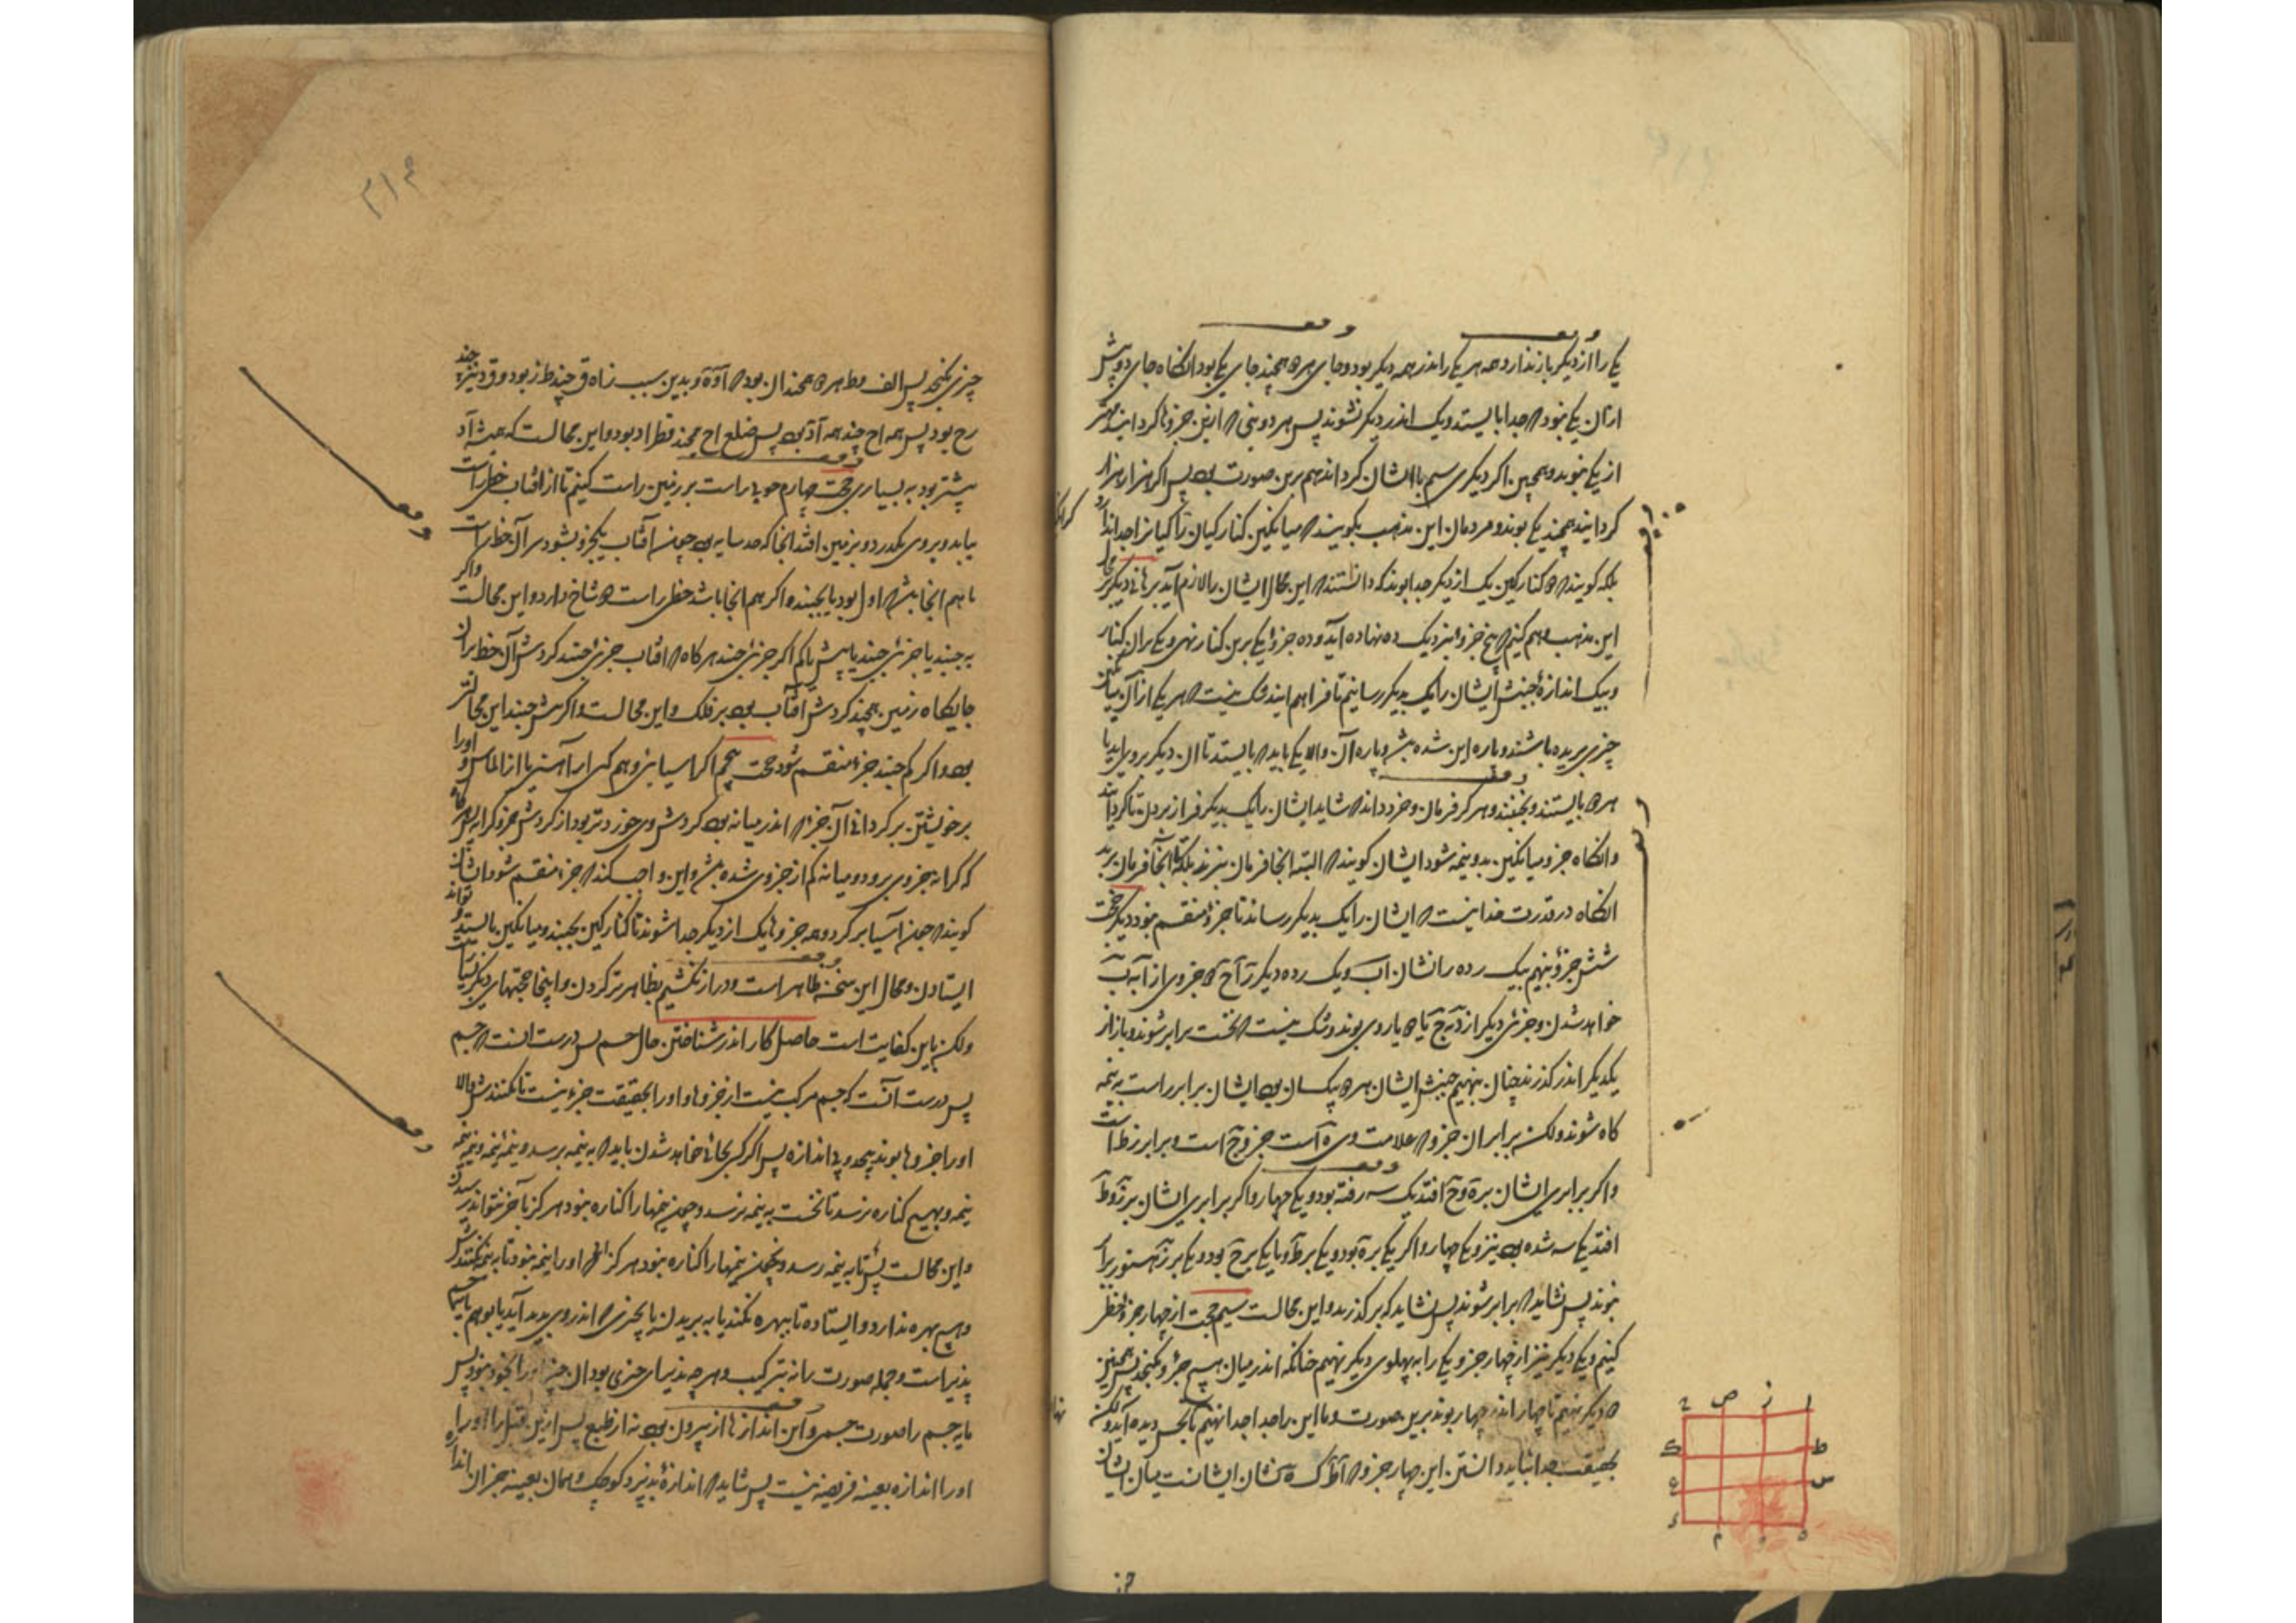 یکی را از دیگر باز ندارد و همه هر یکی را اندر همه دیگر بود و جای هر دو همچند جای یکی بود آنگاه جای دو بیش
از آن یکی نبود که جدا بایستد و یک اندر دیگر نشوند پس هر دو بنی که ازین جزوها گرد آیند مهتر
از یکی نبود و همچنین اگر دیگری سیم با ایشان گرد آید هم برین صورت بود پس اگر هزار هزار
گرد آیند همچند یکی بوند و مردمان این مذهب بگویند که میانگین کنارگیان را یکی از جدا ندارد
بلکه گویند که دو کنارگین یک از دیگر جدا بوند که دانستند که این محال ایشان را لازم آید برهانی دیگر بر محالی
این مذهب وهم کنیم که پنج جزو را بنزدیک ده نهاده آید و ده جزو را یکی برین کنار نهی و یکی بر آن کنار
و بیک اندازه جنبش ایشان را یک بدیگر رسانیم تا فراهم آیند و شک نیست که هر یکی از آن میانگین
چیزی بریده باشند و پاره این شده باشد و پاره آن والا یکی باید که بایستد تا آن دیگر بر وی آید یا
هر دو بایستند و نجنبند و هر که فرمان خرد داند که شاید ایشان را یک بدیگر فراز بردن تا گرد آیند
و آنگاه جزو میانگین بدو نیمه شود ایشان گویند که البته آنجا فرمان نبرند بلکه تا آنجا فرمان برند
آنگاه در قدرت خدا نیست که ایشان را یک بدیگر رساند تا جزو منقسم نبود دیگر حجت
شش جزو بنهیم بیک رده را نشان اب و یک رده دیگر ز ح که جزوی از آ به ب
خواهد شدن و جزئی دیگر از د به ج تا که یاروی بوند و شک نیست که نخست برابر شوند و باز از
یکدیگر اندر گذرند چنان بنهیم جنبش ایشان هر دو یکسان بود ایشان برابر راست به نیمه
گاه شوند ولکن برابر آن جزو که علامت وی ه است جزو ح است و برابر ز ط است
و اگر برابری ایشان بر ه و ح افتد یکی سه رفته بود و یکی چهار و اگر برابری ایشان بر ز و ط
افتد یکی سه شده بود نیز و یکی چهار و اگر یکی بر ه بود و یکی بر ط و یا یکی بر ح بود و یکی بر ز هنوز برابر
نبوند پس نشاید که برابر شوند پس نشاید که بر گذرند و این محالست سیم حجت از چهار جزو خطی
کنیم و یکی دیگر نیز از چهار جزو و یکی را به پهلوی دیگر نهیم چنانکه اندر میان هیچ جزو نگنجد پس همچنین
دو دیگر نهیم تا چهار اندر چهار بوند برین صورت و ما این را جدا جدا نهیم تا بحس دیده آید ولکن
بحقیقت جدا نباید دانستن این چهار جزو که ا ط س ه نشان ایشانست میان ایشان
ا ز ص ح
ط
س
ک
چیزی نگنجد
رح بود پس همه اح چند همه آد بود پس ضلع اح همچند قطر اد بود و این محالست که همیشه آد
بیشتر بود به بسیاری حجت چهارم چوبی راست بر زمین راست کنیم تا از آفتاب خطی راست
بیاید و بروی بگذرد و بزمین افتد آنجا که حد سایه بود چون آفتاب یک جزو بشود سر آن خط راست
یا هم آنجا باشد که اول بود یا بجنبد و اگر هم آنجا باشد خطی راست دو شاخ دارد و این محالست و اگر
به جنبد یا جزئی جنبد یا بیش یا کم اگر جزئی جنبد هرگاه که آفتاب جزئی جنبد گردش آن خط بر آن
جایگاه زمین همچند گردش آفتاب بود بر فلک و این محالست و اگر بیش جنبد این محالتر
بود و اگر کم جنبد جزو منقسم شود حجت پنجم اگر آسیایی وهم کنی او را آهنین یا از الماس و او را
بر خویشتن برگردانی آن جزو که اندر میانه بود گردش وی خوردتر بود از گردش جزو کرانه پس هرگاه
که کرانه جزوی برود و میانه کم از جزوی شده باشد و این واجب کند که جزو منقسم شود ایشان
گویند که چون آسیا برگردد همه جزوها یک از دیگر جدا شوند تا کنارگین بجنبد و میانگین بایستد و تواند
ایستادن و محال این سخن ظاهر است و دراز نکشیم بظاهرتر کردن و اینجا حجتهای دیگر بسیارست
ولکن باین کفایت است حاصل کار اندر شناختن حال جسم پس درست آنست که جسم
پس درست آنست که جسم مرکب نیست از جزوها و او را بحقیقت جزء نیست تا نکنندش والا
او را جزوها بوند بیحد و بی اندازه پس اگر کسی بجائی خواهد شدن باید که به نیمه برسد و نیمه نیمه و نیمه
نیمه و بهیچ کناره نرسد تا نخست به نیمه نرسد و چون نیمها را کناره نبود هرگز بآخر نتواند رسیدن
و این محالست پس تا به نیمه رسد و همچنین نیمها را کناره نبود هرگز که او را نیمه نبود تا به نیمه نکنندش
و هیچ بهره ندارد و ایستاده تا ببهره نکنند یا به بریدن یا بچیزی که اندر وی پدید آید یا بوهم
پذیر است و جمله صورت را نه ترکیب و هر چه پذیرای چیزی بود آن چیز او را بخود نبود پس
مایه جسم را صورت جسمی و این اندازها از بیرون بود نه از طبع پس ازین قبل را او را
او را اندازه بعینه فریضه نیست پس شاید که اندازه بپذیرد کوچک و همان بعینه جز آن اندازه